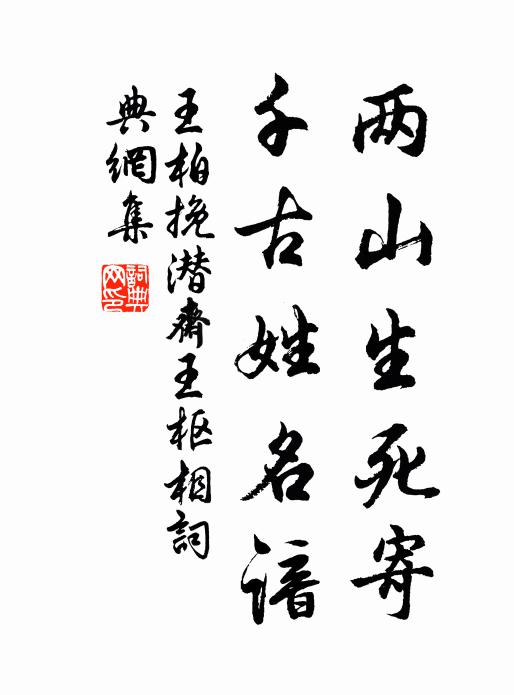 两山生死寄
千古姓名谙
王柏挽潜斋王枢相詞
典網集
詞典網印